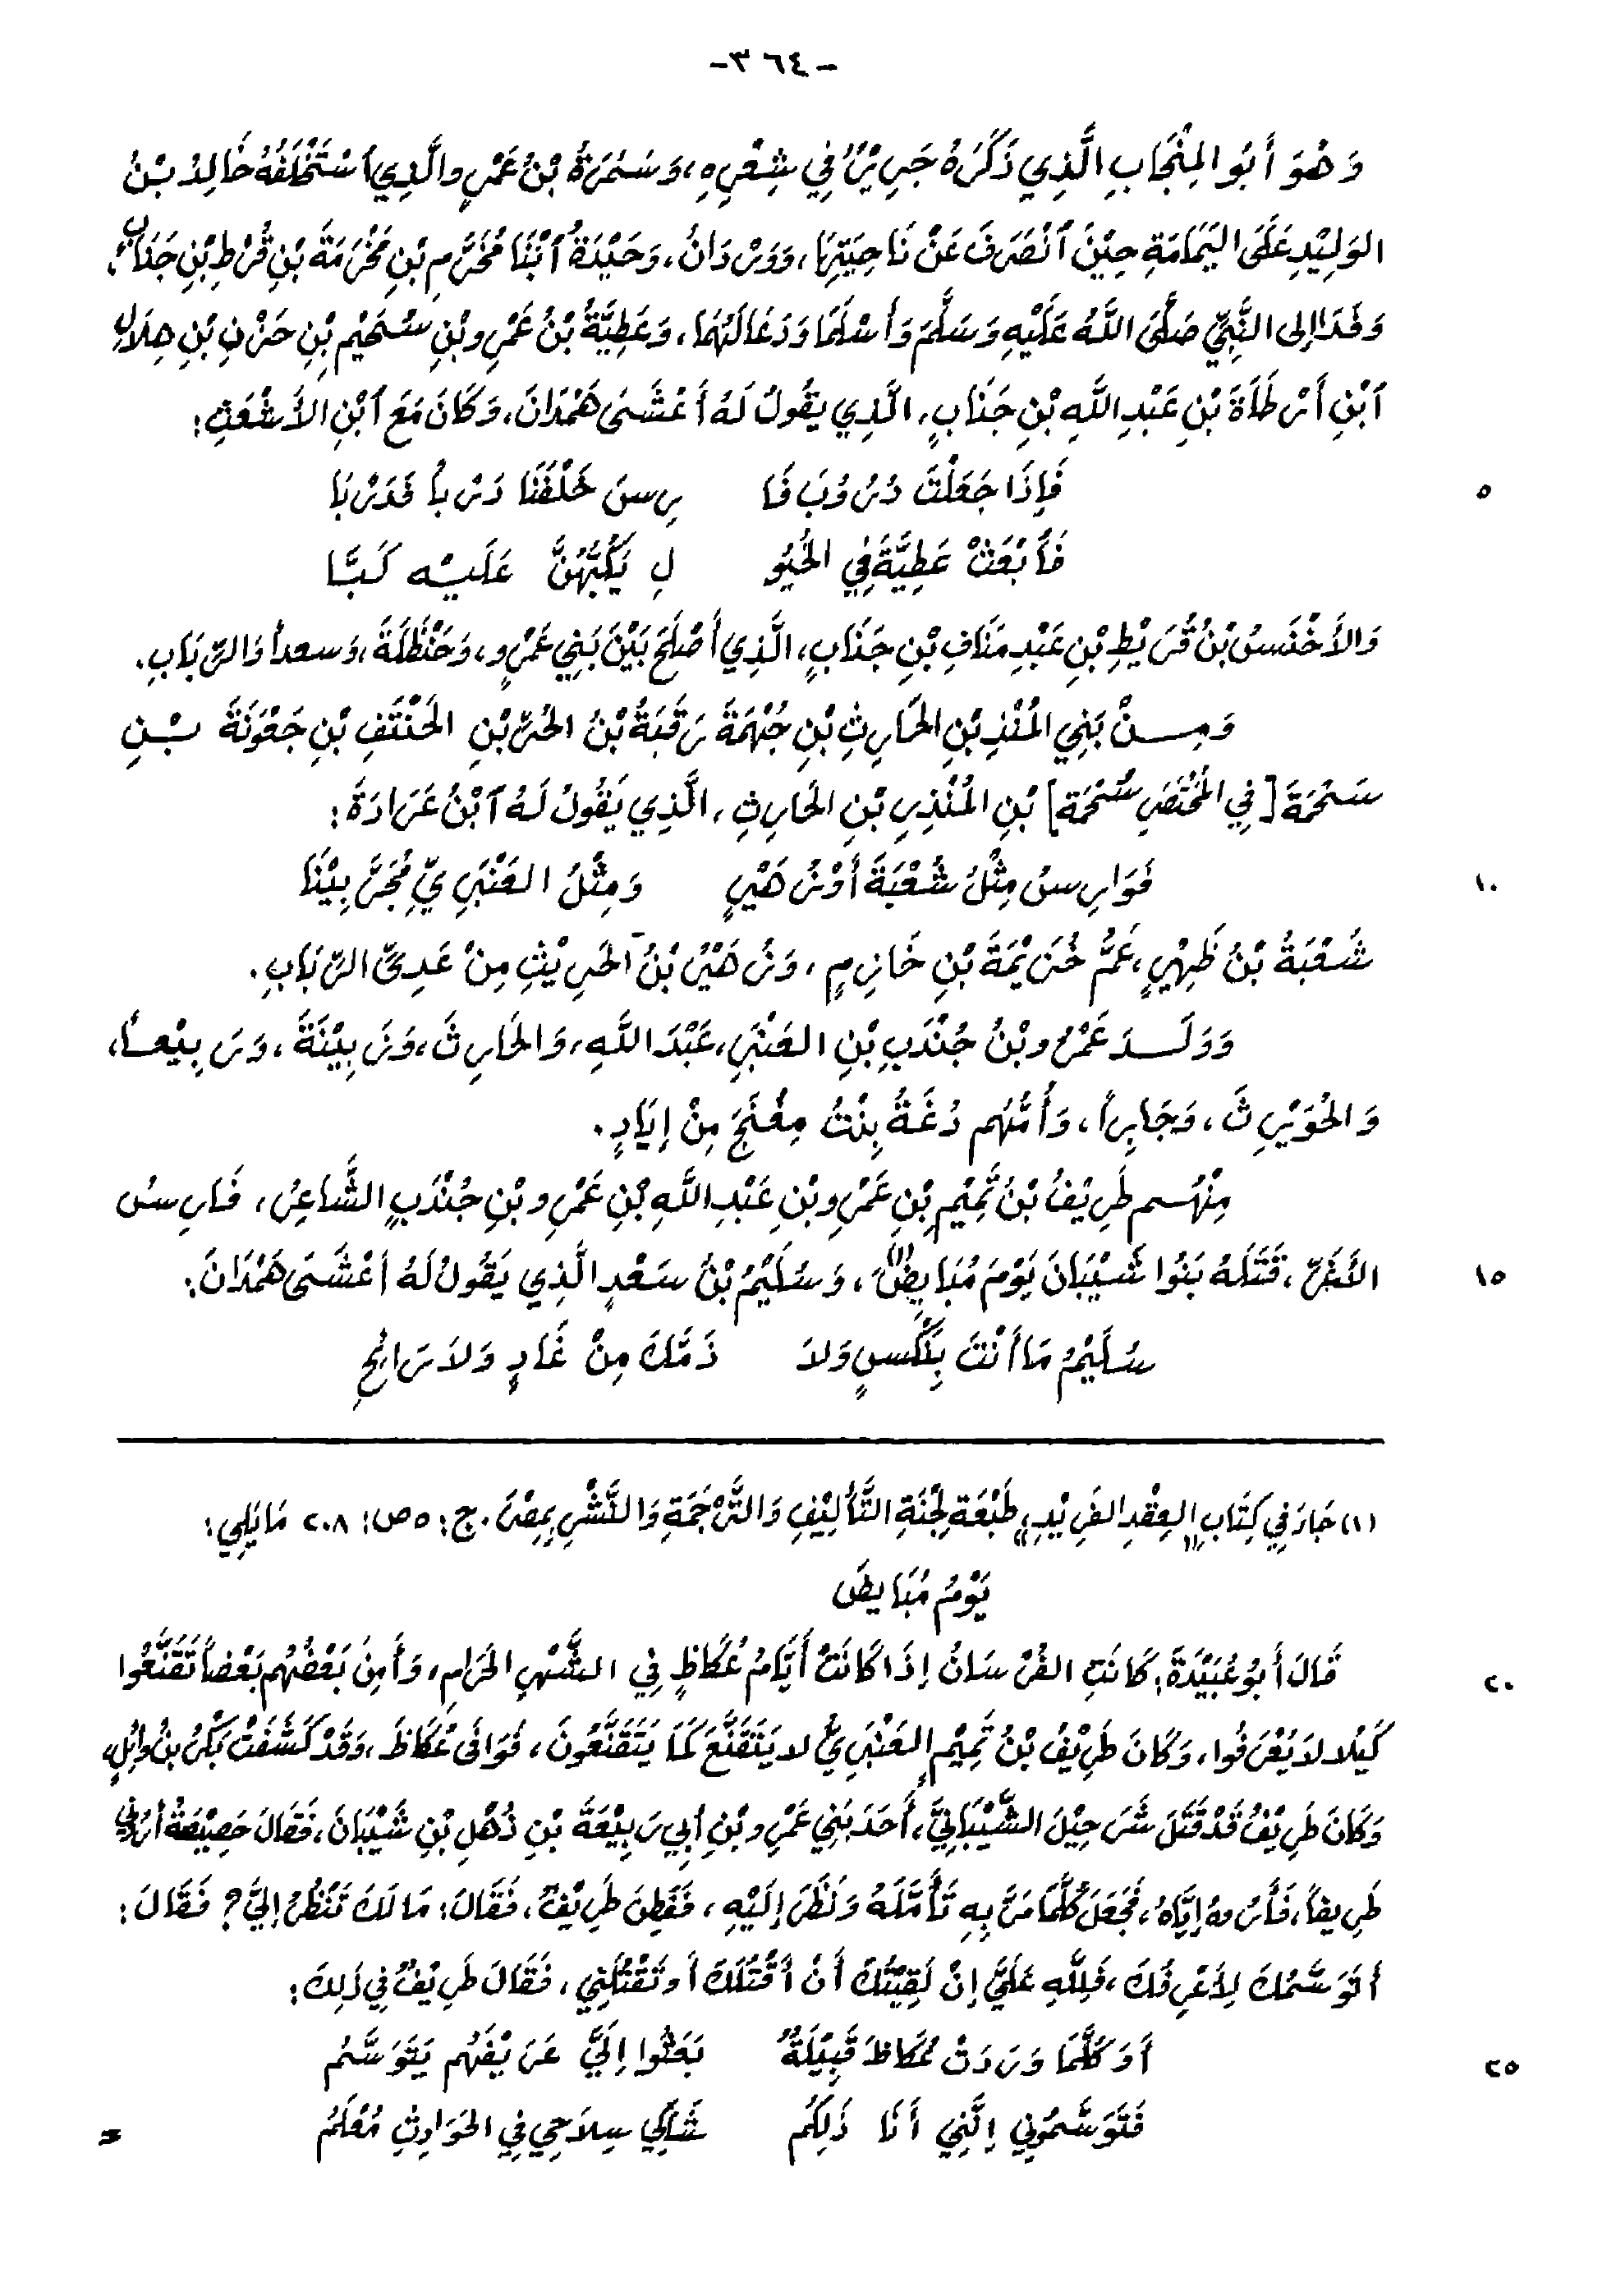 -٣٦٤-
وَهُوَ أَبُو المِنْجَابِ الَّذِي ذَكَرَهُ جَرِيْرٌ فِي شِعْرِهِ، وَسَمُرَةُ بْنُ عَمْرٍ والَّذِي ٱسْتَخْلَفَهُ خَالِدُ بْنُ
الوَلِيْدِ عَلَى اليَمَامَةِ حِيْنَ ٱنْصَرَفَ عَنْ نَاحِيَتِهَا، وَوَرْدَانُ، وَحَيْدَةُ ٱبْنَا مُخَرَّمِ بْنِ مَخْرَمَةَ بْنِ قُرْطِ بْنِ جَنَابٍ،
وَفَدَا إِلى النَّبِيِّ صَلَّى اللَّهُ عَلَيْهِ وَسَلَّمَ وَأَسْلَمَا وَدَعَا لَهُمَا، وَعَطِيَّةُ بْنُ عَمْرِو بْنِ سُحَيْمِ بْنِ حَزْنِ بْنِ هِلَالِ
ٱبْنِ أَرْطَأَةَ بْنِ عَبْدِ اللَّهِ بْنِ جَنَابٍ، الَّذِي يَقُولُ لَهُ أَعْشَى هَمْدَانَ، وَكَانَ مَعَ ٱبْنِ الأَشْعَثِ:
فَإِذَا جَعَلْتَ دُرُوبَ فَا رِسِ خَلْفَنَا دَرْباً فَدَرْبَا ٥
فَٱبْعَثْ عَطِيَّةَ فِي الخُيُو لِ يَكُبُّهُنَّ عَلَيْهِ كَبَّا
وَالأَخْنَسُ بْنُ قُرَيْطِ بْنِ عَبْدِ مَنَافِ بْنِ جَنَابٍ، الَّذِي أَصْلَحَ بَيْنَ بَنِي عَمْرٍو، وَحَنْظَلَةَ، وَسعداً وَالرِّبَابِ.
وَمِــنْ بَنِي المُنْذِرِ بْنِ الحَارِثِ بْنِ جُهْمَةَ رَقَبَةُ بْنُ الحُرِّ بْنِ الحَنْتَفِ بْنِ جَعْوَنَةَ بْــنِ
سَحْمَةَ [فِي المُخْتَصَرِ سُحْمَة] بْنِ المُنْذِرِ بْنِ الحَارِثِ، الَّذِي يَقُولُ لَهُ ٱبْنُ عَرَادَةَ:
فَوَارِسُ مِثْلُ شُعْبَةَ أَوْ زُهَيْرٍ وَمِثْلُ العَنْبَرِيِّ مُجَرَّبِيْنَا ١٠
شُعْبَةُ بْنُ ظَهِيْرٍ، عَمُّ خُزَيْمَةَ بْنِ خَازِمٍ، وَزُهَيْرُ بْنُ الحَرِيْثِ مِنْ عَدِيِّ الرِّبَابِ.
وَوَلَــدَ عَمْرُو بْنُ جُنْدَبِ بْنِ العَنْبَرِ، عَبْدَ اللَّهِ، وَالحَارِثَ، وَزَبِيْنَةَ، وَرَبِيْعــاً،
وَالحُوَيْرِثَ، وَجَابِراً، وَأُمُّهُم دُغَةُ بِنْتُ مِغْنَجَ مِنْ إِيَادٍ.
مِنْهُــم طَرِيْفُ بْنُ تَمِيْمِ بْنِ عَمْرِو بْنِ عَبْدِ اللَّهِ بْنِ عَمْرِو بْنِ جُنْدَبٍ الشَّاعِرُ، فَارِسُ
الأَغَرِّ، قَتَلَهُ بَنُوا شَيْبَانَ يَوْمَ مُبَايِضٍ(١)، وَسُلَيْمُ بْنُ سَعْدٍ الَّذِي يَقُولُ لَهُ أَعْشَى هَمْدَانَ: ١٥
سُلَيْمُ مَا أَنْتَ بِنَكْسٍ وَلاَ ذَمَّكَ مِنْ غَادٍ وَلاَ رَائِحِ
(١) جَاءَ فِي كِتَابِ «العِقْدِ الفَرِيْدِ» طَبْعَةِ لَجْنَةِ التَّأْلِيْفِ وَالتَّرْجَمَةِ وَالنَّشْرِ بِمِصْرَ. ج: ٥ ص: ٢٠٨ مَا يَلِي:
يَوْمُ مُبَايِضَ
قَالَ أَبُو عُبَيْدَةَ: كَانَتِ الفُرْسَانُ إِذَا كَانَتْ أَيَّامُ عُكَاظٍ فِي الشَّهْرِ الحَرَامِ، وَأَمِنَ بَعْضُهُم بَعْضاً تَقَنَّعُوا ٢٠
كَيْلا لاَ يُعْرَفُوا، وَكَانَ طَرِيْفُ بْنُ تَمِيْمٍ العَنْبَرِيُّ لا يَتَقَنَّعُ كَمَا يَتَقَنَّعُونَ، فَوَافَى عُكَاظَ، وَقَدْ كَشَّفَتْ بَكْرُ بْنُ وائِلٍ،
وَكَانَ طَرِيْفُ قَدْ قَتَلَ شَرَحِيْلَ الشَّيْبَانِيَّ، أَحَدَ بَنِي عَمْرِو بْنِ أَبِي رَبِيْعَةَ بْنِ ذُهْلِ بْنِ شَيْبَانَ، فَقَالَ حَصِيْصَةُ أَرُونِي
طَرِيفاً، فَأَرُوهُ إِيَّاهُ، فَجَعَلَ كُلَّمَا مَرَّ بِهِ تَأَمَّلَهُ وَنَظَرَ إِلَيْهِ، فَفَطِنَ طَرِيْفٌ، فَقَالَ: مَا لَكَ تَنْظُرُ إِلَيَّ؟ فَقَالَ:
أَتَوَسَّمُكَ لِأَعْرِفَكَ، فَلِلَّهِ عَلَيَّ إِنْ لَقِيْتُكَ أَنْ أَقْتُلَكَ أَو تَقْتُلَنِي، فَقَالَ طَرِيْفٌ فِي ذَلِكَ:
أَوَ كُلَّمَا وَرَدَتْ عُكَاظَ قَبِيْلَةٌ بَعَثُوا إِلَيَّ عَرِيْفَهُم يَتَوَسَّمُ ٢٥
فَتَوَسَّمُونِي إِنَّنِي أَنَا ذَلِكُم شَاكِي سِلاَحِي فِي الحَوَادِثِ مُعْلَمُ =